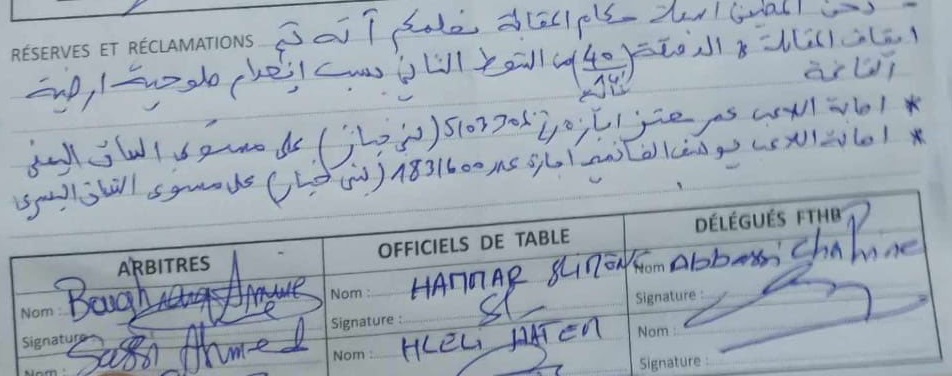 نحن الممضين أسفله حكام المقابلة نعلمكم أنه تم
RÉSERVES ET RÉCLAMATIONS
ايقاف المقابلة في الدقيقة (40) من الشوط الثاني بسبب إنعدام صلوحية ارضية
القاعة
* اصابة اللاعب عمر اجازة 5103305 (بني خيار) على مستوى الساق اليمنى
* اصابة اللاعب يوسف اجازة عدد 1831600 (بني خيار) على مستوى الساق اليسرى
ARBITRES OFFICIELS DE TABLE DÉLÉGUÉS FTHB
Nom : Nom : HAMMAR SLIMONE Nom Abbassi Chahine
Signature Signature : Signature :
Sassi Ahmed Nom : HLELI HATEM Nom :
Nom : Signature :